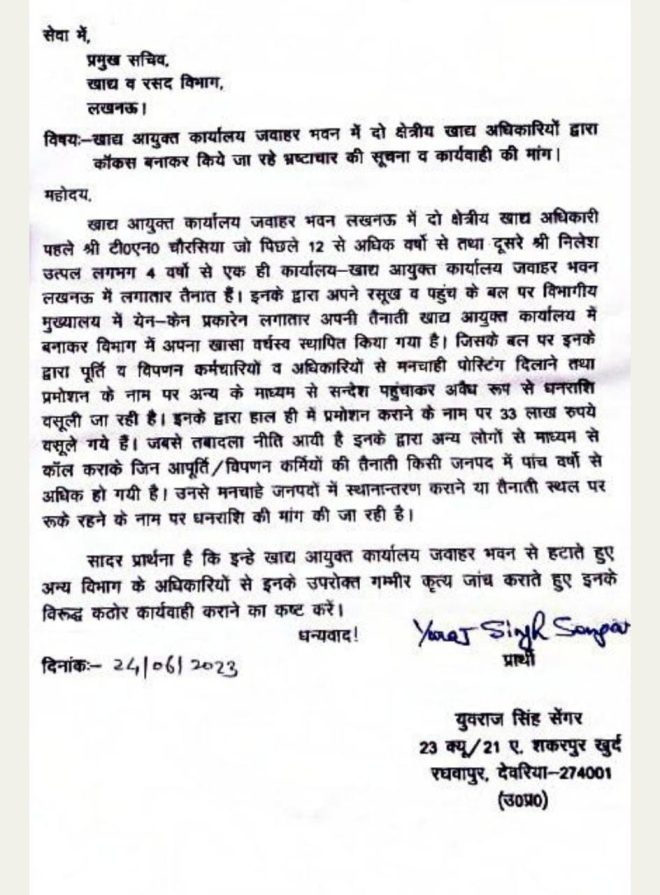 सेवा में,
प्रमुख सचिव,
खाद्य व रसद विभाग,
लखनऊ।
विषयः–खाद्य आयुक्त कार्यालय जवाहर भवन में दो क्षेत्रीय खाद्य अधिकारियों द्वारा
कॉकस बनाकर किये जा रहे भ्रष्टाचार की सूचना व कार्यवाही की मांग।
महोदय,
खाद्य आयुक्त कार्यालय जवाहर भवन लखनऊ में दो क्षेत्रीय खाद्य अधिकारी
पहले श्री टी0एन0 चौरसिया जो पिछले 12 से अधिक वर्षो से तथा दूसरे श्री निलेश
उत्पल लगभग 4 वर्षो से एक ही कार्यालय–खाद्य आयुक्त कार्यालय जवाहर भवन
लखनऊ में लगातार तैनात हैं। इनके द्वारा अपने रसूख व पहुंच के बल पर विभागीय
मुख्यालय में येन–केन प्रकारेन लगातार अपनी तैनाती खाद्य आयुक्त कार्यालय में
बनाकर विभाग में अपना खासा वर्चस्व स्थापित किया गया है। जिसके बल पर इनके
द्वारा पूर्ति व विपणन कर्मचारियों व अधिकारियों से मनचाही पोस्टिंग दिलाने तथा
प्रमोशन के नाम पर अन्य के माध्यम से सन्देश पहुंचाकर अवैध रूप से धनराशि
वसूली जा रही है। इनके द्वारा हाल ही में प्रमोशन कराने के नाम पर 33 लाख रुपये
वसूले गये हैं। जबसे तबादला नीति आयी है इनके द्वारा अन्य लोगों से माध्यम से
कॉल कराके जिन आपूर्ति/विपणन कर्मियों की तैनाती किसी जनपद में पांच वर्षो से
अधिक हो गयी है। उनसे मनचाहे जनपदों में स्थानान्तरण कराने या तैनाती स्थल पर
रूके रहने के नाम पर धनराशि की मांग की जा रही है।
सादर प्रार्थना है कि इन्हे खाद्य आयुक्त कार्यालय जवाहर भवन से हटाते हुए
अन्य विभाग के अधिकारियों से इनके उपरोक्त गम्भीर कृत्य जांच कराते हुए इनके
विरूद्ध कठोर कार्यवाही कराने का कष्ट करें।
धन्यवाद!
Yuvraj Singh Sengar
प्रार्थी
दिनांकः– 24/06/2023
युवराज सिंह सेंगर
23 क्यू/21 ए, शकरपुर खुर्द
रघवापुर, देवरिया–274001
(उ0प्र0)